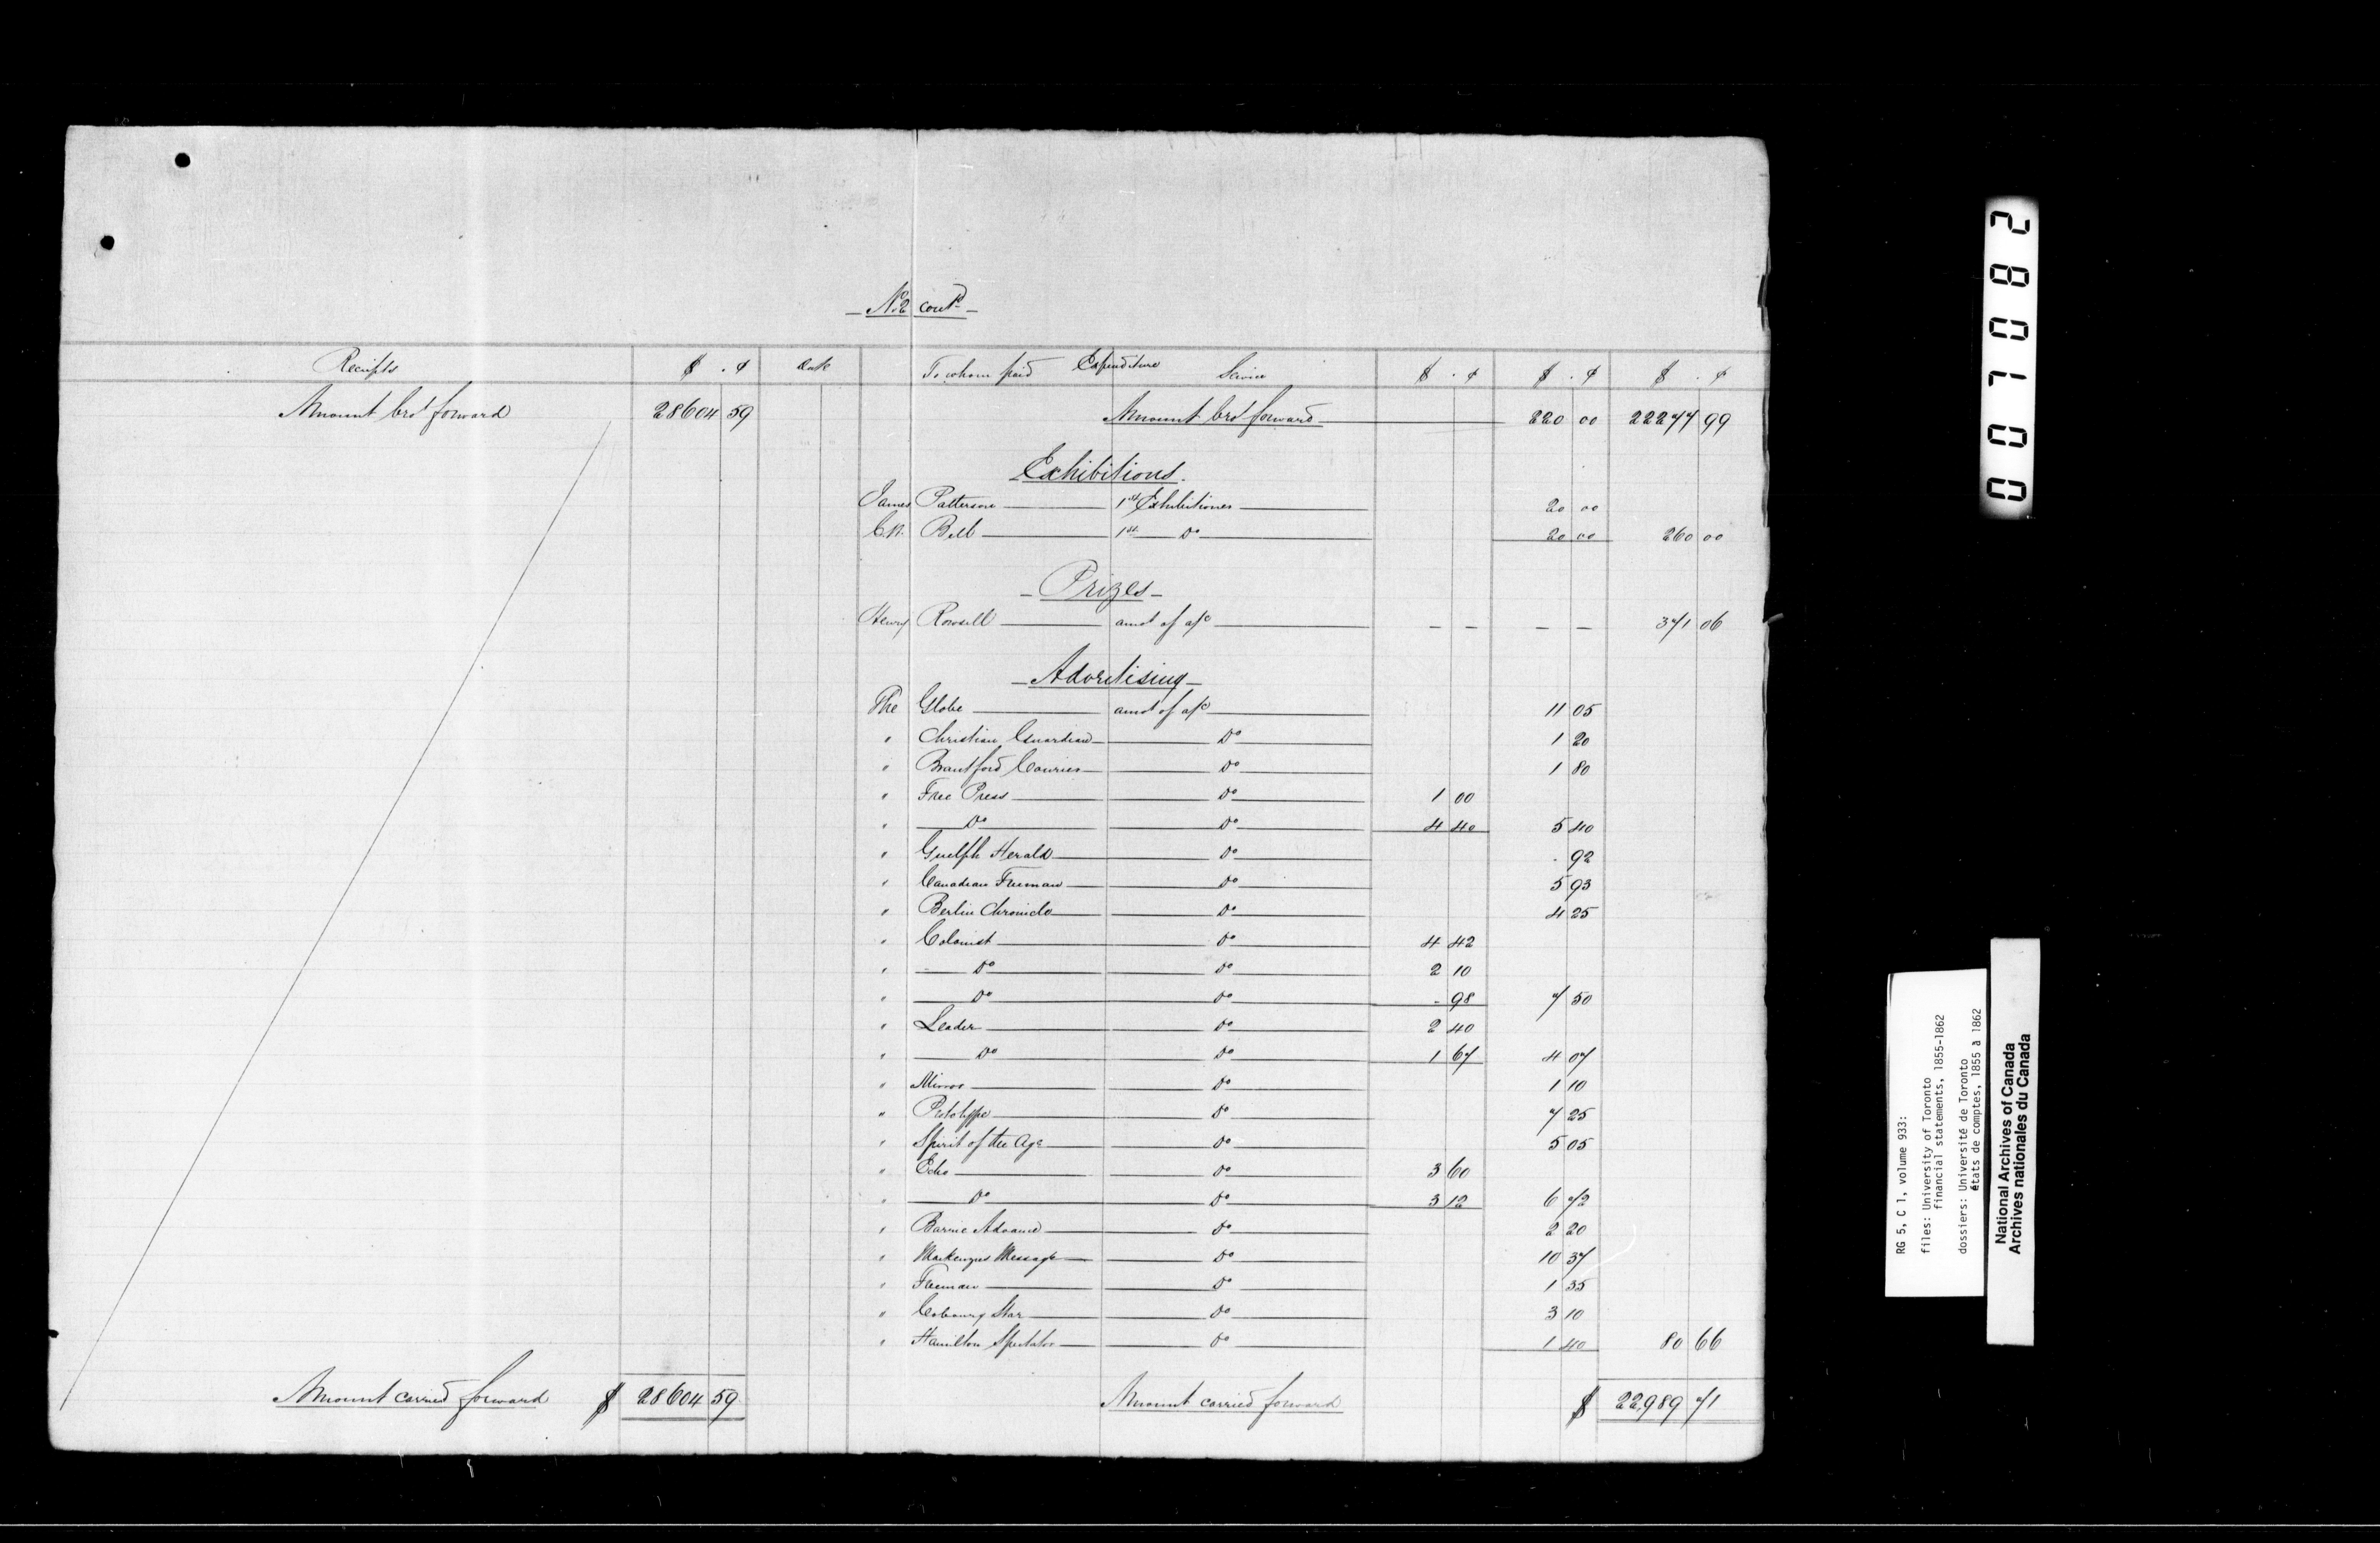 No 2 cont^d
Receipts $ . ¢ Date To whom paid Expenditure Service $ . ¢ $ . ¢ $ . ¢
Amount bro^t forward 28604 59 Amount bro^t forward 220 00 22277 99
Exhibitions.
James Patterson 1^st Exhibitioner 20 00
Bell 1^st D^o 20 00 260 00
- Prizes -
Henry Rowsell amot of a/c - - - - 371 06
- Advertising -
The Globe amot of a/c 11 05
" Christian Guardian D^o 1 20
" Brantford Courier D^o 1 80
" Free Press D^o 1 00
" D^o D^o 4 40 5 40
" Guelph Herald D^o . 92
" Canadian Freeman D^o 5 93
" Berlin Chronicle D^o 4 25
" Colonist D^o 4 42
" D^o D^o 2 10
" D^o D^o - 98 7 50
" Leader D^o 2 40
" D^o D^o 1 67 4 07
" Mirror D^o 1 10
" Prototype D^o 7 25
" Spirit of the Age D^o 5 05
" Echo D^o 3 60
" D^o D^o 3 12 6 72
" Barrie Advance D^o 2 20
" Mackenzies Message D^o 10 37
" Freeman D^o 1 35
" Cobourg Star D^o 3 10
" Hamilton Spectator D^o 1 40 80 66
Amount carried forward $ 28604 59 Amount carried forward $ 22,989 71
007082
RG 5, C 1, volume 933:
files: University of Toronto
financial statements, 1855-1862
dossiers: Université de Toronto
états de comptes, 1855 à 1862
National Archives of Canada
Archives nationales du Canada